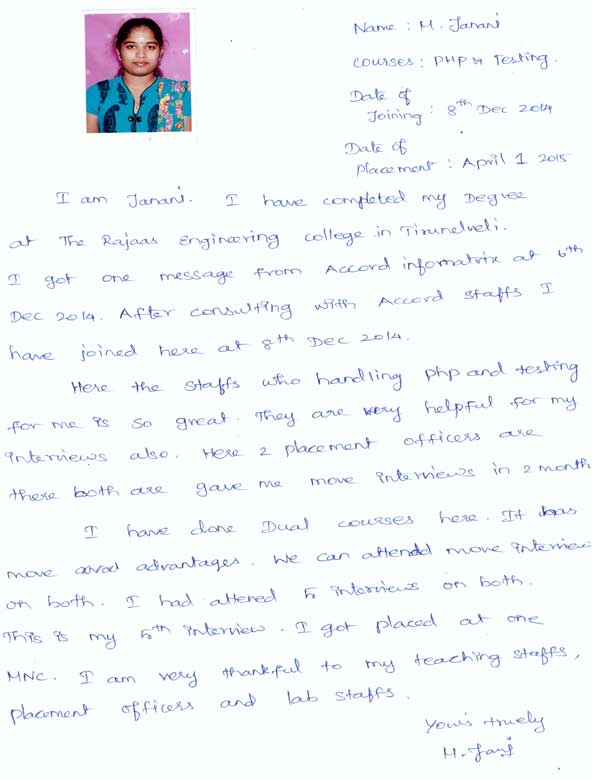 Name : M. Janani
Courses : PHP & Testing.
Date of
Joining : 8th Dec 2014
Date of
Placement : April 1 2015
I am Janani. I have completed my Degree
at The Rajaas Engineering college in Tirunelveli.
I got one message from Accord infomatrix at 6th
Dec 2014. After consulting with Accord staffs I
have joined here at 8th Dec 2014.
Here the staffs who handling php and testing
for me is so great. They are very helpful for my
interviews also. Here 2 placement officers are
there both are gave me more interviews in 2 month
I have done Dual courses here. It has
more advantages. We can attend more interview
on both. I had attened 5 interviews on both.
This is my 5th interview. I got placed at one
MNC. I am very thankful to my teaching staffs,
placement officers and lab staffs.
Your's truely